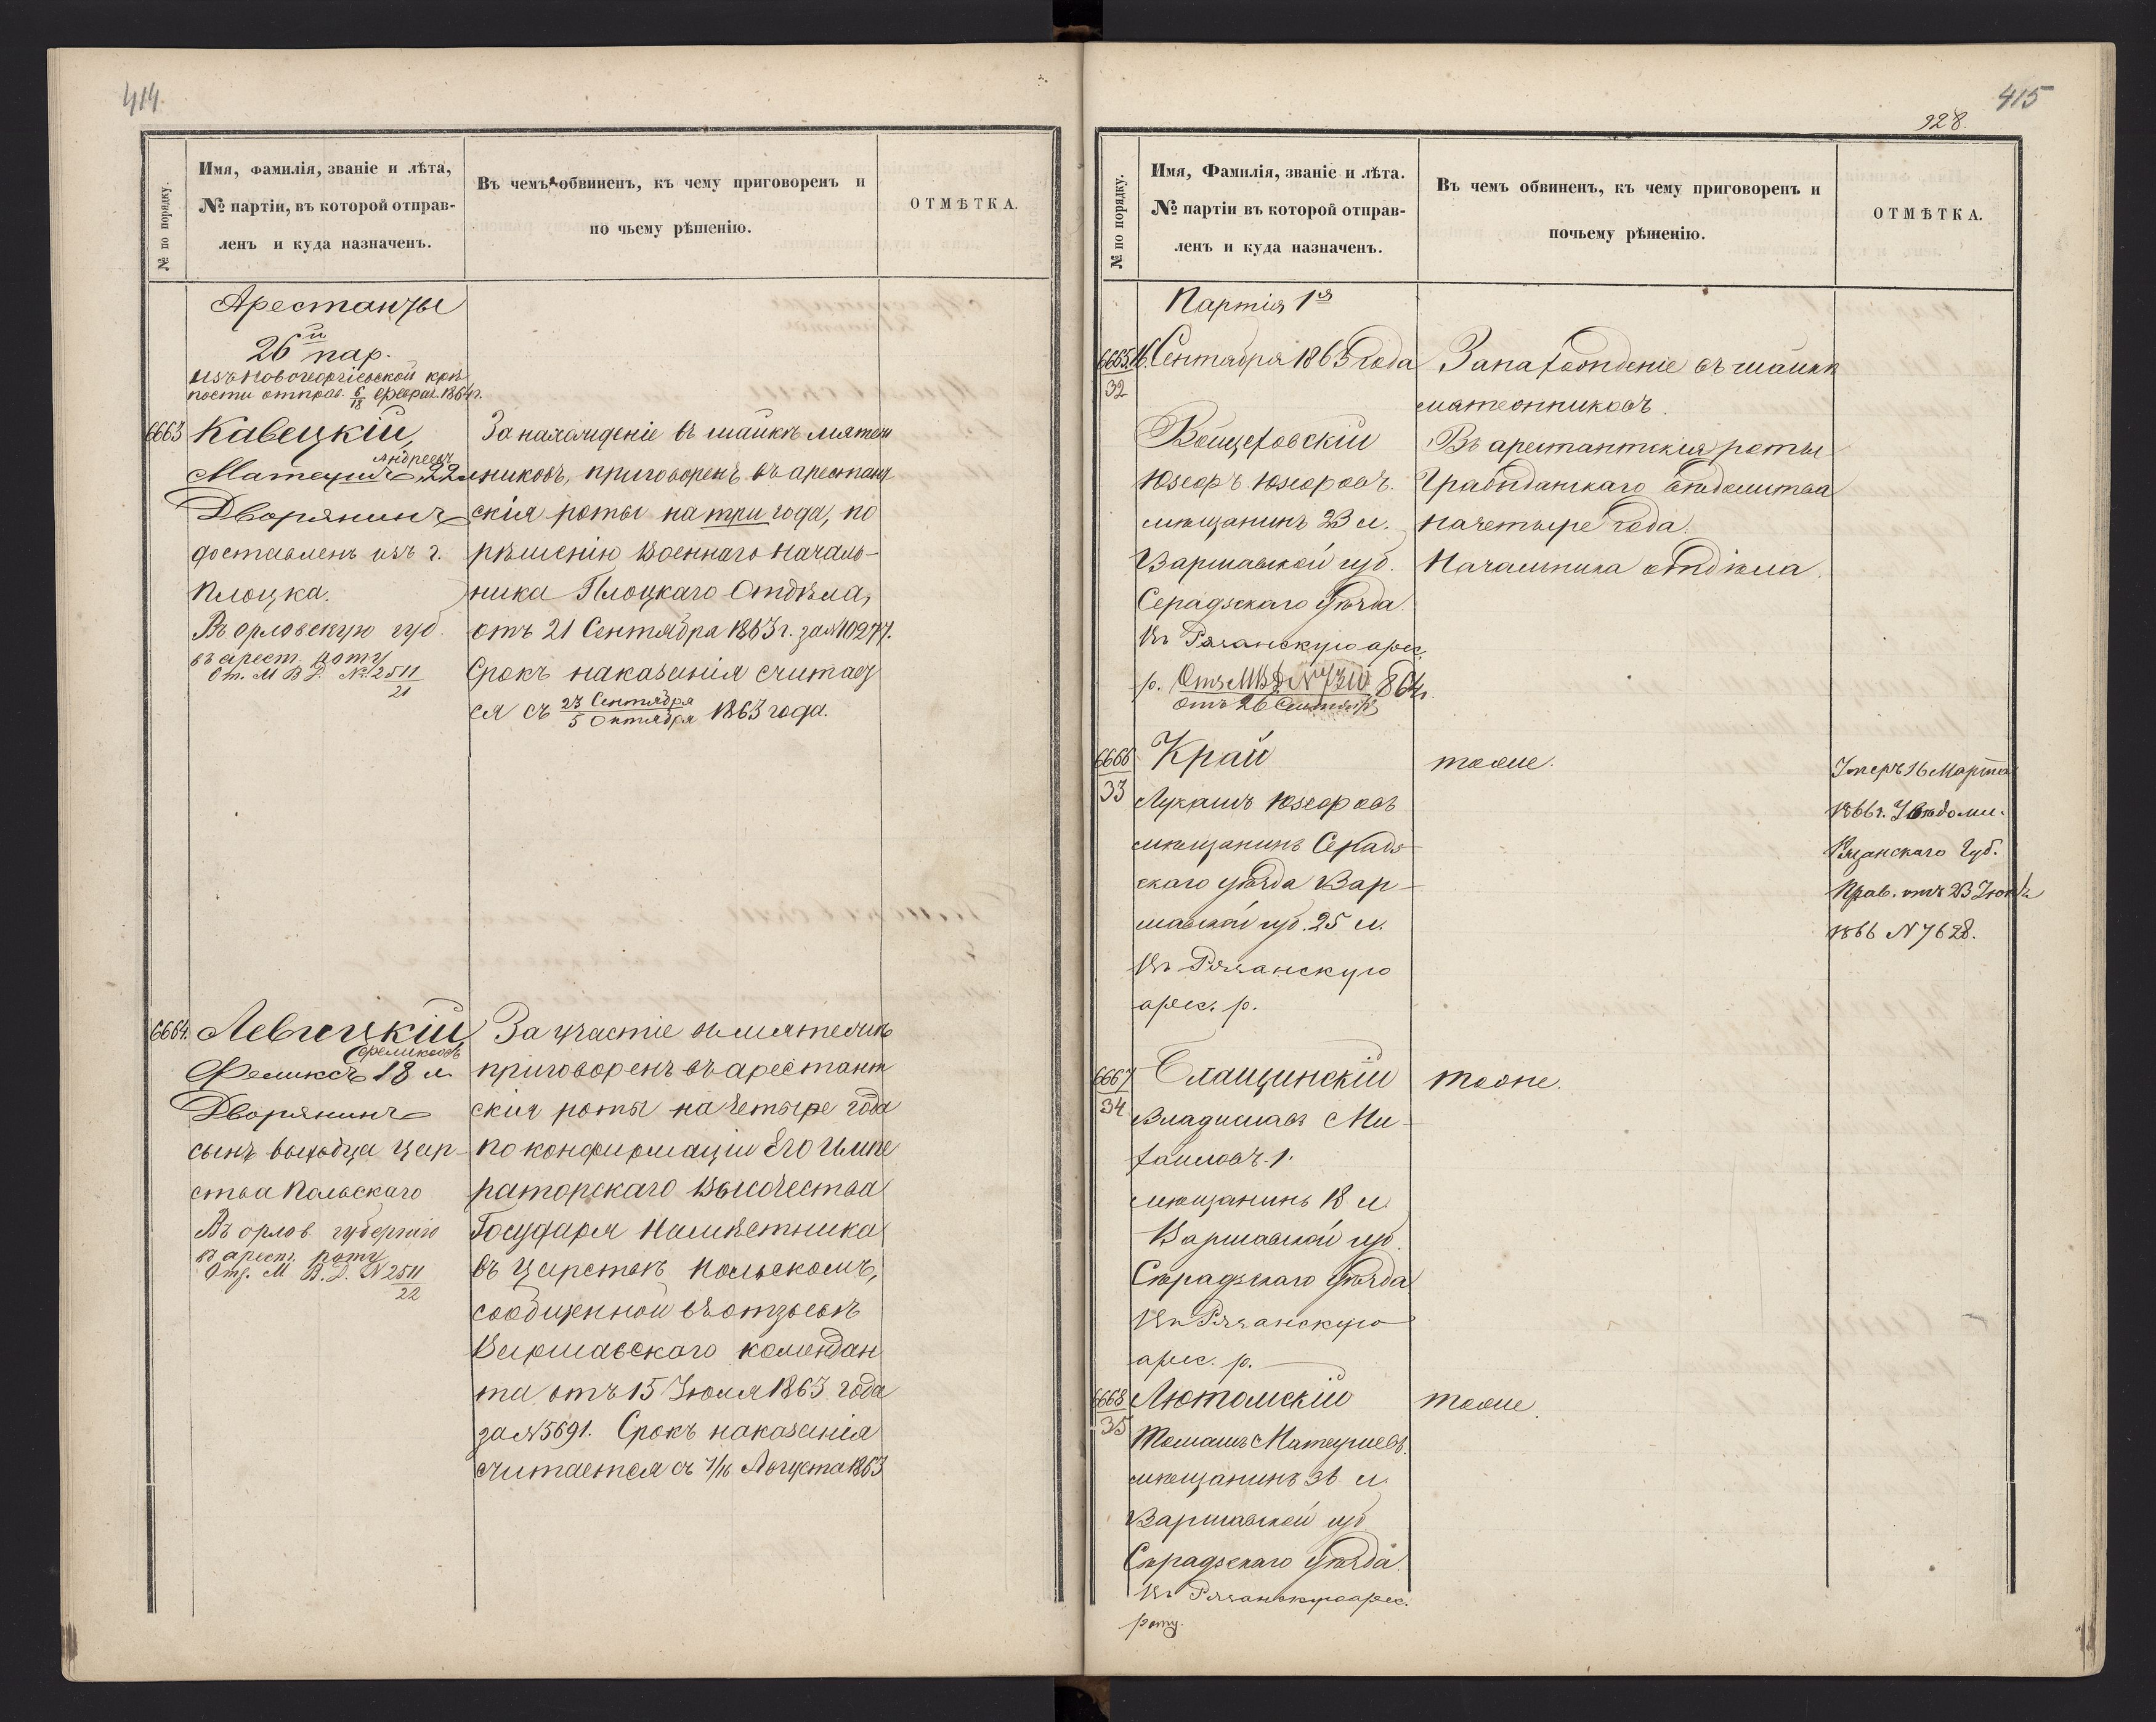 414.
№ по порядку.
Имя, фамилія, званіе и лѣта,
№ партіи, въ которой отправ-
ленъ и куда назначенъ.
Въ чемъ обвиненъ, къ чему приговоренъ и
по чьему рѣшенію.
ОТМѢТКА.
Арестанты
26й пар.
изъ Новогеоргіевской крѣ
пости отправ. 6/18 Феврал. 1864 г.
6663
Кавецкій,
Андреевъ
Матеушъ 22
Дворянинъ
доставленъ изъ г.
Плоцка.
Въ орловскую губ.
въ арест. роту
От. М В Д. № 2511
21
За нахожденіе въ шайкѣ мятеж
никовъ, приговоренъ въ арестант
скія роты на три года, по
рѣшенію Военнаго Началь-
ника Плоцкаго Отдѣла,
отъ 21 Сентября 1863 г. за №10277.
Срокъ наказанія считает
ся съ 23 Сентября / 5 Октября 1863 года.
6664.
Левицкій
Феликсовъ
Феликсъ 18 л.
Дворянинъ
сынъ выходца Цар-
ства Польскаго
Въ орлов. губернію
въ арест. роту
Отз. М В. Д. № 2511
22
За участіе въ мятежѣ
приговоренъ въ арестант
скія роты на четыре года
по конфирмаціи Его Импе
раторскаго Высочества
Государя Намѣстника
въ Царствѣ Польскомъ,
сообщенной въ отзывѣ
Варшавскаго комендан
та отъ 15 Іюля 1863 года
за №5691. Срокъ наказанія
считается съ 4/16 Августа 1863
415
928.
№ по порядку.
Имя, Фамилія, званіе и лѣта.
№ партіи въ которой отправ-
ленъ и куда назначенъ.
Въ чемъ обвиненъ, къ чему приговоренъ и
почьему рѣшенію.
ОТМѢТКА.
Партія 1я
6665
32
16 Сентября 1863 года
Войцеховскій
Юзефъ Юзефовъ.
мѣщанинъ 23 л.
Варшавской губ.
Серадзскаго уѣзда.
Въ Рязанскую арес.
р. Отз МВД № 7310 864 г.
отъ 26 Сентября
За нахожденіе въ шайкѣ
мятежниковъ.
Въ арестантскія роты
Гражданскаго вѣдомства
на четыре года.
Начальника отдѣла.
6666
33
Край
Лукашъ Юзефовъ
мѣщанинъ Серадз-
скаго уѣзда Вар-
шавской губ. 25 л.
Въ Рязанскую
арес. р.
тоже.
Умеръ 16 Марта
1866 г. Увѣдоми.
Рязанскаго Губ.
Прав. отъ 23 Іюня
1866 № 7628.
6667
34
Блащинскій
Владиславъ Ми-
хаиловъ.
мѣщанинъ 18 л.
Варшавской губ.
Сѣрадзскаго уѣзда
Въ Рязанскую
арес. р.
тоже.
6668
35
Лютомскій
Томашъ Матеушевъ.
мѣщанинъ 36 л.
Варшавской губ
Сѣрадзскаго уѣзда.
Въ Рязанскую арес.
роту.
тоже.